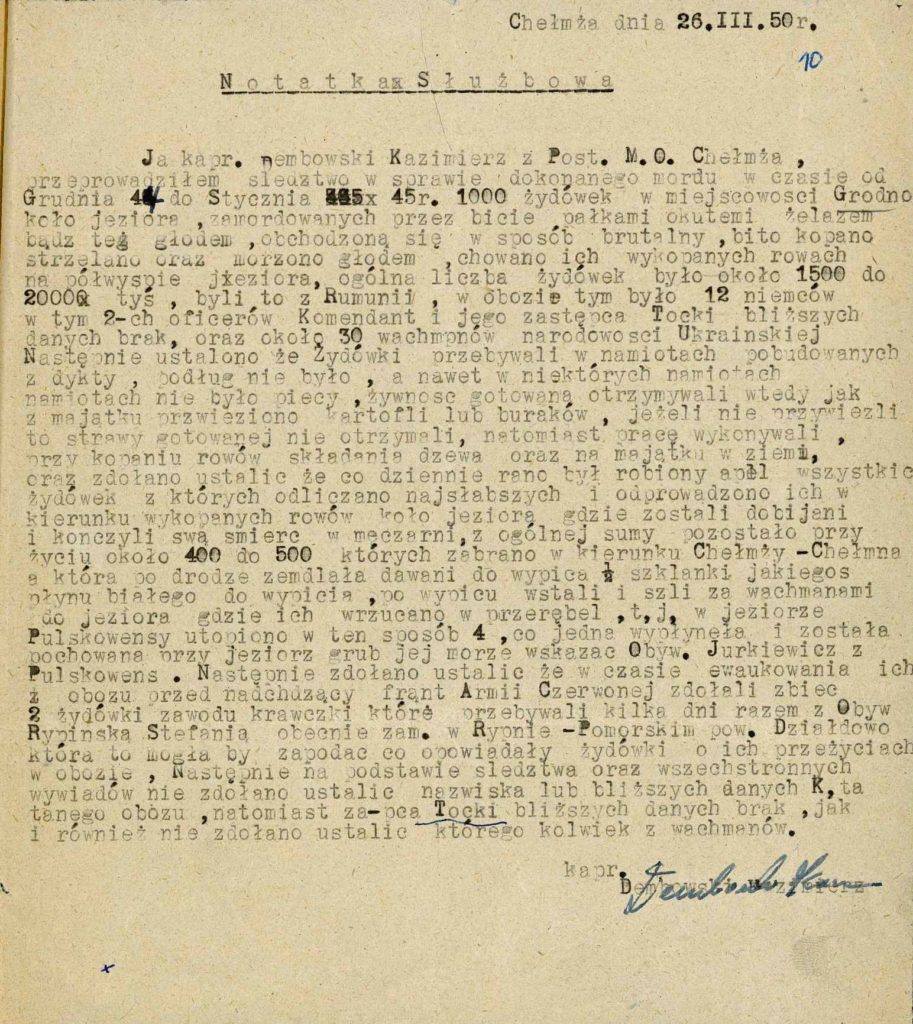 Chełmża dnia 26.III.50r.
10
Notatka Służbowa
Ja kapr. Dembowski Kazimierz z Post. M.O. Chełmża ,
przeprowadziłem sledztwo w sprawie dokonanego mordu w czasie od
Grudnia 44 do Stycznia 45r. 1000 żydówek w miejscowosci Grodno
koło jeziora ,zamordowanych przez bicie pałkami okutemi żelazem
bądz teg głodem ,obchodzoną się w sposób brutalny ,bito kopano
strzelano oraz morzono głodem ,chowano ich wykopanych rowach
na półwyspie jxeziora, ogólna liczba żydówek było około 1500 do
2000 tyś , byli to z Rumunii , w obozie tym było 12 niemców
w tym 2-ch oficerów Komendant i jego zastępca Tocki bliższych
danych brak, oraz około 30 wachmpnów narodowosci Ukrainskiej
Następnie ustalono że Żydówki przebywali w namiotach pobudowanych
z dykty , podług nie było , a nawet w niektórych namiotach
namiotach nie było piecy ,żywnosc gotowaną otrzymywali wtedy jak
z majątku przwieziono kartofli lub buraków , jeżeli nie przywiezli
to strawy gotowanej nie otrzymali, natomiast pracę wykonywali ,
przy kopaniu rowów składania dzewa oraz na majątku w ziemi,
oraz zdołano ustalic że co dziennie rano był robiony apel wszystkic
żydówek z których odliczano najsłabszych i odprowadzono ich w
kierunku wykopanych rowów koło jeziora gdzie zostali dobijani
i konczyli swą smierc w męczarni,z ogólnej sumy pozostało przy
życiu około 400 do 500 których zabrano w kierunku Chełmży -Chełmna
a która po drodze zemdlała dawani do wypica ½ szklanki jakiegos
płynu białego do wypicia ,po wypicu wstali i szli za wachmanami
do jeziora gdzie ich wrzucano w przerębel ,t,j, w jeziorze
Pulskowensy utopiono w ten sposób 4 ,co jedna wypłynęła i została
pochowana przy jeziorz grub jej morze wskazac Obyw. Jurkiewicz z
Pulskowens . Następnie zdołano ustalic że w czasie ewaukowania ich
z obozu przed nadchdzący frąnt Armii Czerwonej zdołali zbiec
2 żydówki zawodu krawczki które przebywali kilka dni razem z Obyw
Rypinską Stefanią obecnie zam. w Rypnie -Pomorskim pow. Działdowo
która to mogła by zapodac co opowiadały żydówki o ich przeżyciach
w obozie , Następnie na podstawie sledztwa oraz wszechstronnych
wywiadów nie zdołano ustalic nazwiska lub bliższych danych K,ta
tanego obozu ,natomiast za-pca Tocki bliższych danych brak ,jak
i również nie zdołano ustalic którego kolwiek z wachmanów.
kapr.
Dembowski Kazimierz